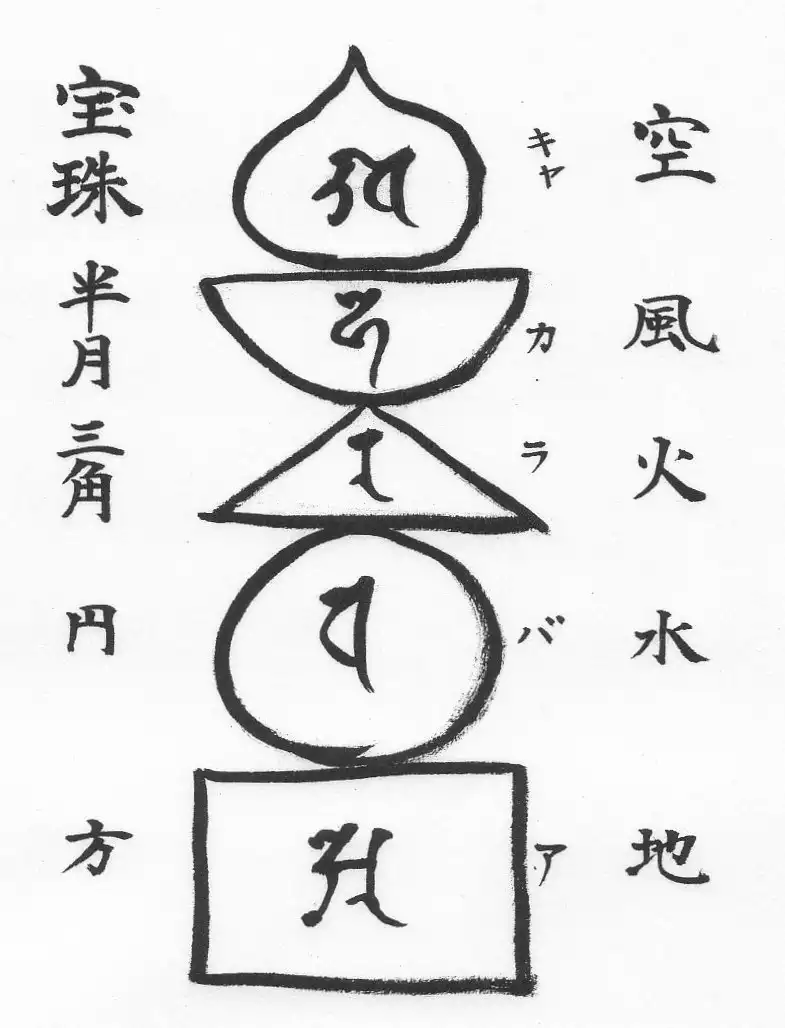 空 キャ 𑖏 宝珠
風 カ 𑖮 半月
火 ラ 𑖨 三角
水 バ 𑖪 円
地 ア 𑖀 方